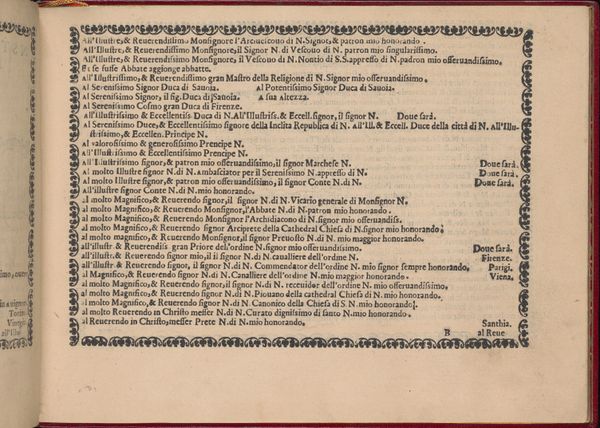 All'Illustre, & Reuerendissimo Monsignore l'Arciuescouo di N. Signor, & patron mio honorando.
All'Illustre, & Reuerendissimo Monsignore, il Signor N. di Vescouo di N. patron mio singularissimo.
All'Illustre, & Reuerendissimo Monsignore, il Vescouo di N. Nontio di S.S. appresso di N. padron mio osseruandissimo.
Et se fusse Abbate aggionge abbatte.
All'Illustrissimo, & Reuerendissimo gran Mastro della Religione di N. Signor mio osseruandissimo.
Al Serenissimo Signor Duca di Sauoia. Al Potentissimo Signor Duca di Sauoia.
Al Serenissimo Signor, il sig. Duca di Sauoia. A sua Altezza.
Al Serenissimo Cosmo gran Duca di Firenze.
all'Illustrissimo & Eccellentiss. Duca di N. All'Illustriss. & Eccell. signor, il signor N. Doue sarà.
Al Serenissimo Duce, & Eccellentissimo signore della Inclita Republica di N. All'Ill. & Eccell. Duce della città di N. All'Illu-
strissimo, & Eccellen. Principe N.
Al valorosissimo & generosissimo Prencipe N.
All'Illustrissimo & Eccellentissimo Prencipe N.
All'Illustrissimo signor, & patron mio osseruandissimo, il signor Marchese N. Doue sarà.
Al molto Illustre signor N. di N. Ambasciator per il Serenissimo N. appresso di N. Doue sarà.
Al molto Illustre signor, & patron mio osseruandissimo, il signor Conte N. di N. Doue sarà.
All'illustre signor Conte N. di N. mio honorando.
al molto Magnifico, & Reuerendo signor, il signor N. di N. Vicario generale di Monsignor N.
al molto Magnifico, & Reuerendo Monsignor, l'Abbate N. di N. patron mio honorando.
al molto Magnifico, & Reuerendo Monsignor l'Archidiacono di N. signor mio osseruandiss.
al molto Magnifico, & Reuerendo signor Arciprete della Cathedral Chiesa di N. signor mio honorando.
al molto magnifico, & Reuerendo Monsignor, il signor Preuosto N. di N. mio maggior honorando.
all'illustr. & Reuerendiss gran Priore dell'ordine N. signor mio osseruandissimo. Doue sarà.
all'illustr. & Reuerendo signor mio, il signor N. di N. cauallier dell'ordine N. Firenze.
all'illustr. & Reuerendo signor, il signor N. di N. Commendator dell'ordine N. mio signor sempre honorando. Parigi.
al Magnifico, & Reuerendo signor N. di N. Caualliere dell'ordine N. mio maggior honorando. Viena.
al molto Magnifico, & Reuerendo signor, il signor N. di N. receuidor dell'ordine N. mio osseruandissimo.
al molto magnifico, & Reuerendo signor N. di N. Piouano della cathedral Chiesa di N. mio honorando.
al molto magnifico, & Reuerendo signor N. di N. Canonico della Chiesa di S. N. mio honorando.
al molto Reuerendo in Christo messer N. di N. Curato dignissimo di santo N. mio honorando.
al Reuerendo in Christo, messer Prete N. di N. mio honorando. Santhia.
B al Reue